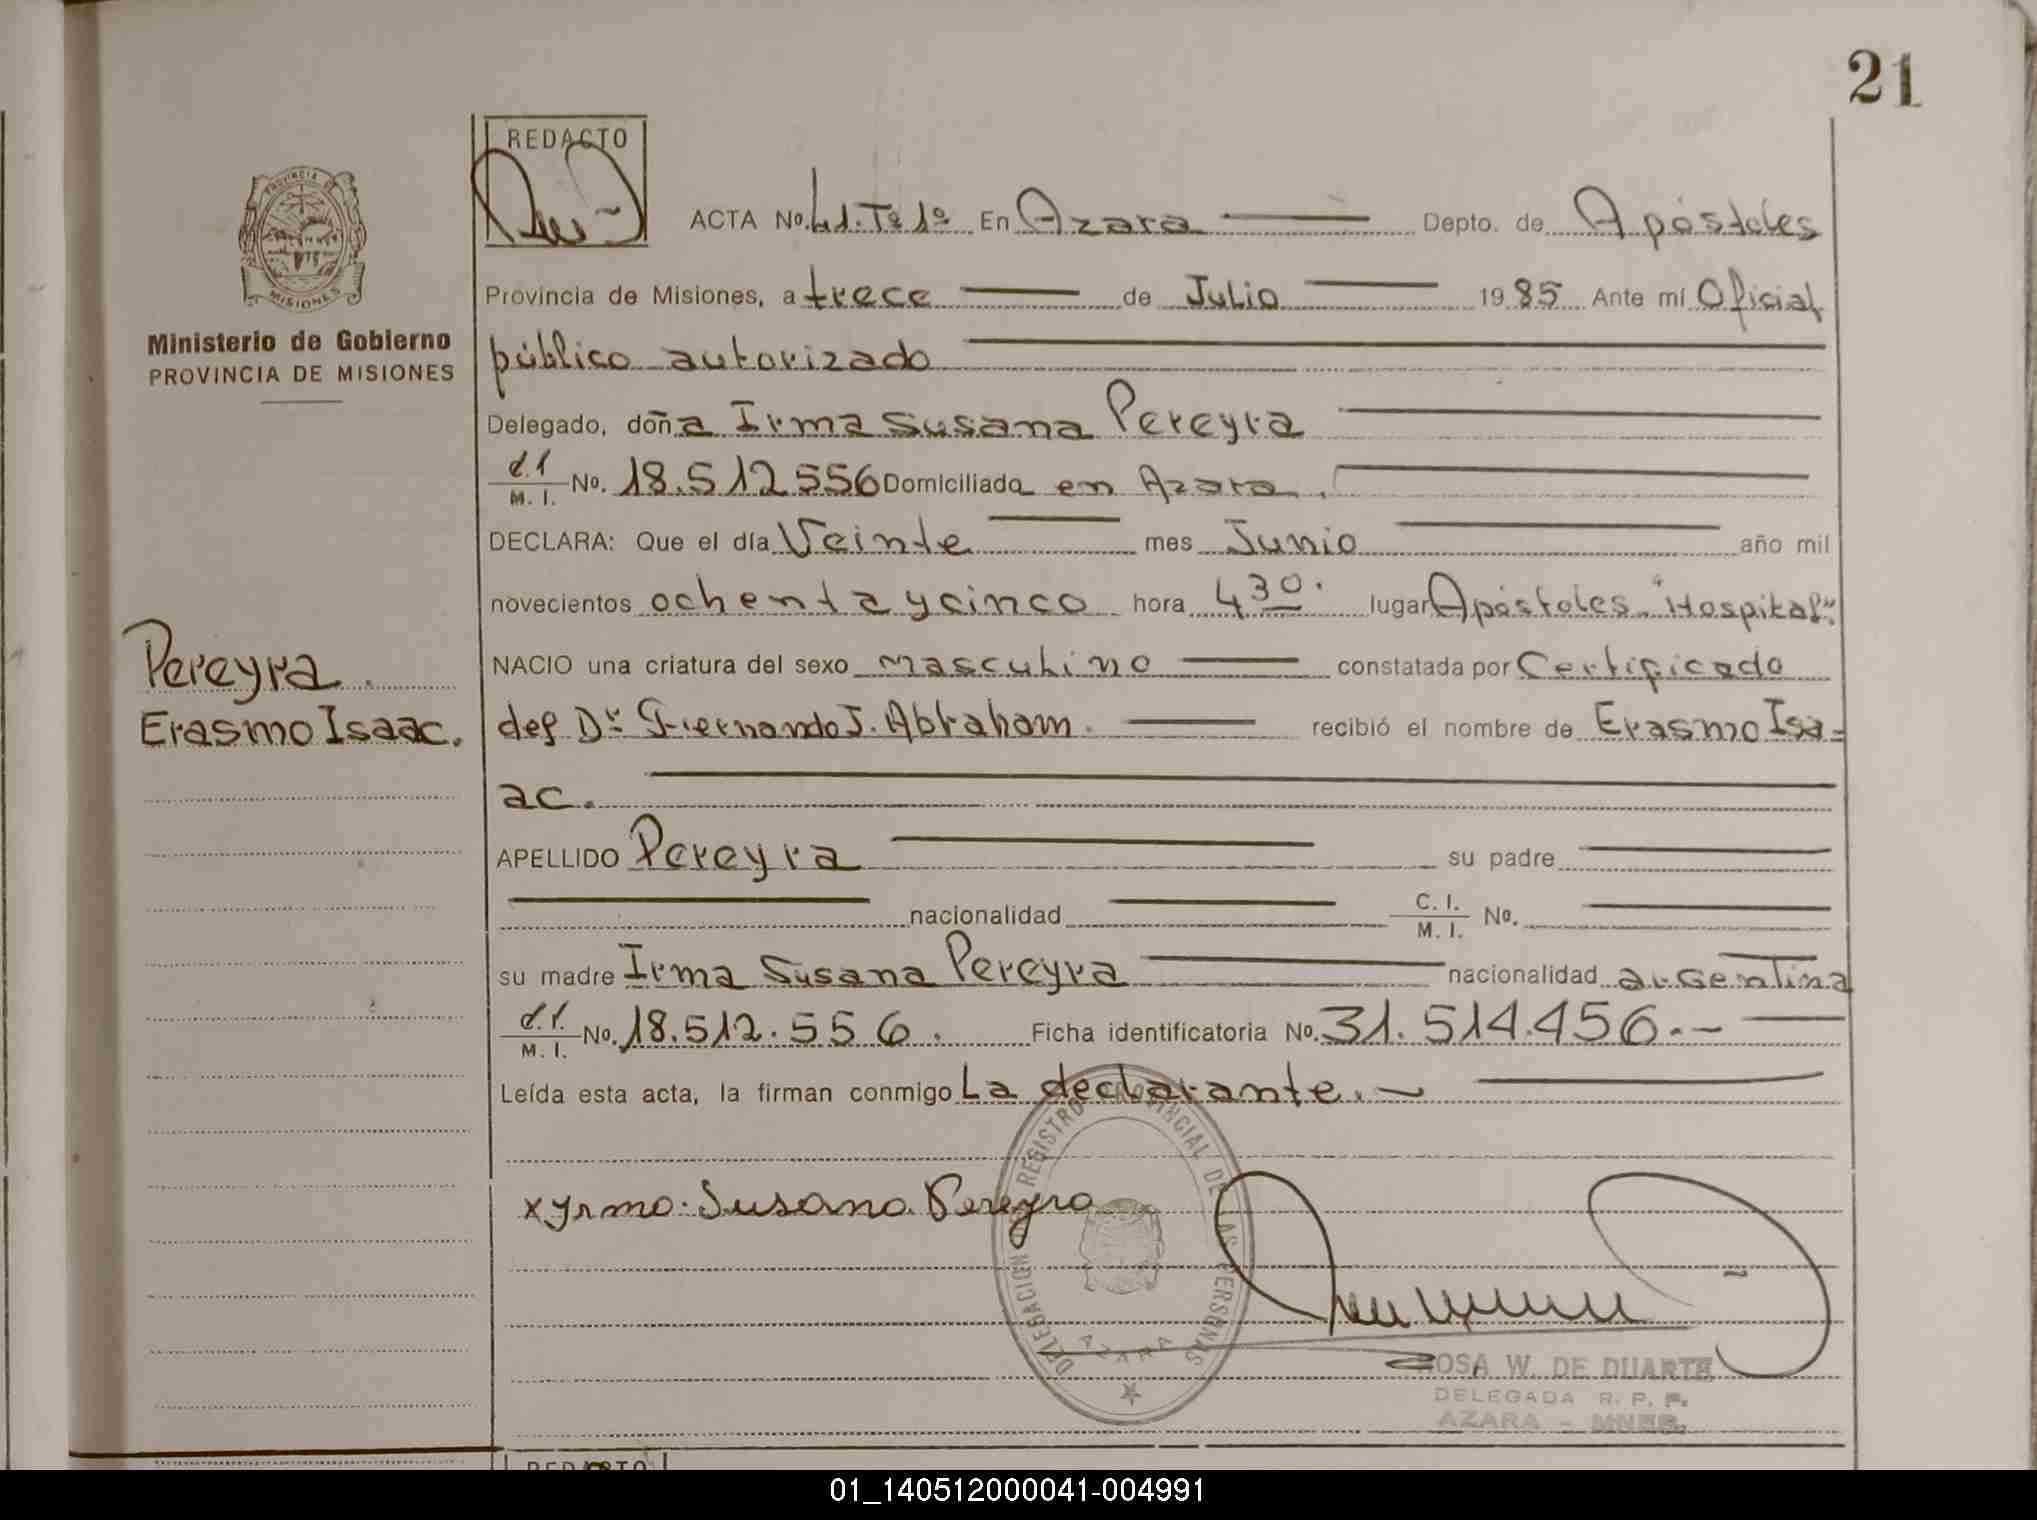 21
REDACTO
PROVINCIA DE
MISIONES
Ministerio de Gobierno
PROVINCIA DE MISIONES
Pereyra.
Erasmo Isaac.
ACTA Nº. 41. Tº 1º En Azara Depto. de Apóstoles
Provincia de Misiones, a trece de Julio 1985 Ante mí Oficial
público autorizado
Delegado, doña Irma Susana Pereyra
d.1 M. I. Nº. 18.512556 Domiciliada en Azara.
DECLARA: Que el día Veinte mes Junio año mil
novecientos ochenta y cinco hora 4 30. lugar Apóstoles "Hospital".
NACIO una criatura del sexo masculino constatada por Certificado
del Dr. Fernando J. Abraham. recibió el nombre de Erasmo Isa=
ac.
APELLIDO Pereyra su padre
nacionalidad C. I. M. I. Nº.
su madre Irma Susana Pereyra nacionalidad argentina
d.1. M. I. Nº. 18.512.556. Ficha identificatoria Nº. 31.514.456.-
Leída esta acta, la firman conmigo La declarante.-
x Yrma. Susana Pereyra
DELEGACION REGISTRO PROVINCIAL DE LAS PERSONAS
AZARA
ROSA W. DE DUARTE
DELEGADA R. P. P.
AZARA - MNES.
REDACTO
01_140512000041-004991